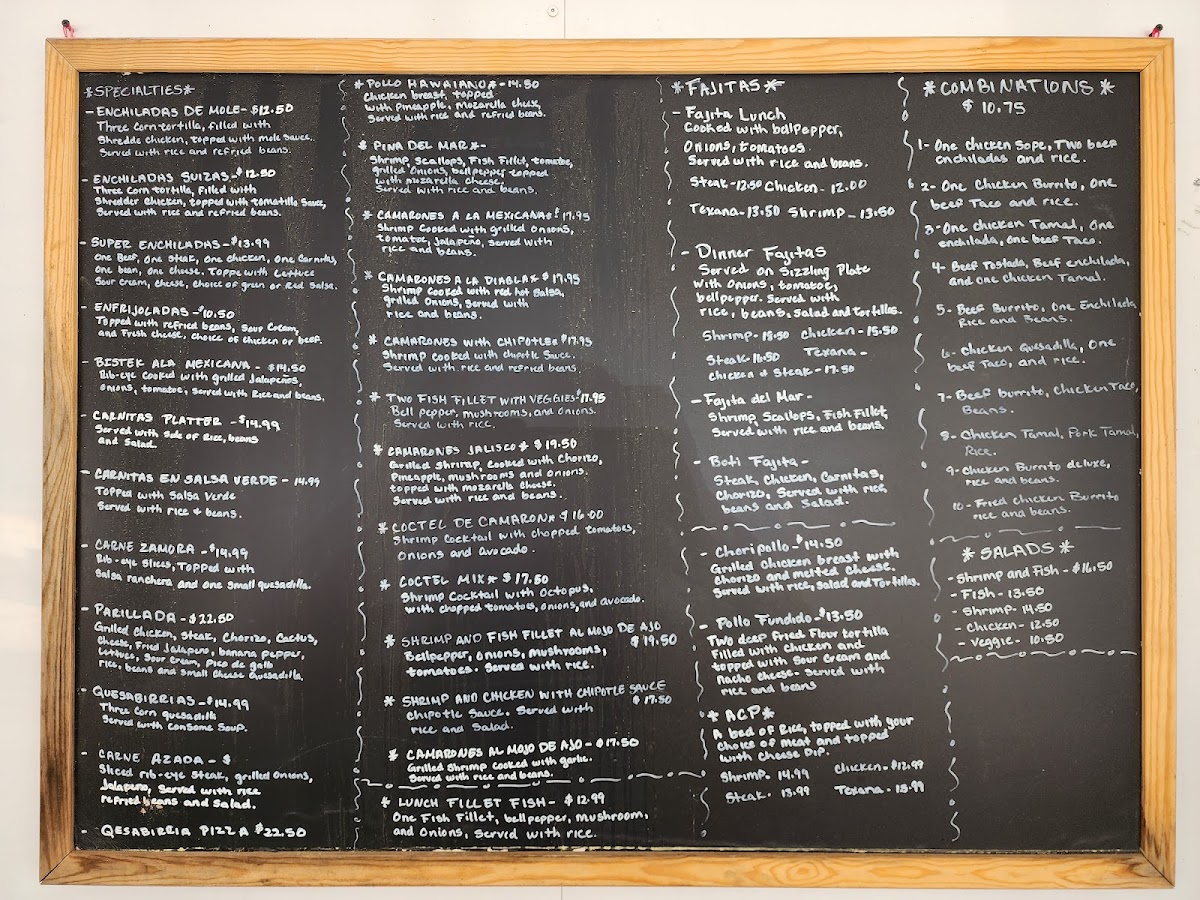 *SPECIALTIES*
- ENCHILADAS DE MOLE - $12.50
Three corn tortilla, filled with
Shredde chicken, topped with mole sauce.
Served with rice and refried beans.
- ENCHILADAS SUIZAS - $12.50
Three Corn tortilla, Filled with
Shredder Chicken, topped with tomatillo Sauce,
Served with rice and refried beans.
- SUPER ENCHILADAS - $13.99
One Beef, One steak, One chicken, One Carnitas,
one bean, one cheese. Toppe with Lettuce
Sour cream, cheese, choice of green or Red Salsa.
- ENFRIJOLADAS - $10.50
Topped with refried beans, Sour Cream,
and Fresh cheese, choice of chicken or beef.
- BISTEK ALA MEXICANA - $14.50
Rib-eye cooked with grilled Jalapeños,
onions, tomatoe, served with Rice and beans.
- CARNITAS PLATTER - $14.99
Served with Side of Rice, beans
and Salad.
- CARNITAS EN SALSA VERDE - 14.99
Topped with Salsa Verde
Served with rice & beans.
- CARNE ZAMORA - $14.99
Rib-eye slices, Topped with
Salsa ranchera and one small quesadilla.
- PARILLADA - $22.50
Grilled chicken, Steak, Chorizo, Cactus,
Cheese, Fried Jalapeño, banana pepper,
Lettuce, Sour Cream, Pico de gallo
rice, beans and small Cheese Quesadilla.
- QUESABIRRIAS - $14.99
Three Corn quesadilla
Served with consome Soup.
- CARNE AZADA - $
Sliced rib-eye Steak, grilled Onions,
Jalapeño, Served with rice
refried beans and Salad.
- QESABIRRIA PIZZA $22.50
* POLLO HAWAIANO * - 14.50
Chicken breast, topped
with Pineapple, Mozarella cheese,
Served with rice and refried beans.
* PINA DEL MAR * -
Shrimp, Scallops, Fish Fillet, tomatoe,
grilled Onions, bellpepper topped
with mozarella Cheese,
Served with rice and beans.
* CAMARONES A LA MEXICANA * $17.95
Shrimp Cooked with grilled Onions,
tomatoe, Jalapeño, Served with
rice and beans.
* CAMARONES A LA DIABLA * $17.95
Shrimp Cooked with red hot Salsa,
grilled Onions, Served with
rice and beans.
* CAMARONES with CHIPOTLE * $17.95
Shrimp cooked with chipotle Sauce.
Served with rice and refried beans.
* TWO FISH FILLET WITH VEGGIES $17.95
Bell pepper, mushrooms, and Onions.
Served with rice.
* CAMARONES JALISCO * $19.50
Grilled Shrimp, Cooked with Chorizo,
Pineapple, mushrooms and Onions.
topped with mozarella Cheese.
Served with rice and beans.
* COCTEL DE CAMARON * $16.00
Shrimp Cocktail with chopped tomatoes,
Onions and Avocado.
* COCTEL MIX * $17.50
Shrimp Cocktail with Octopus,
with chopped tomatoes, onions, and avocado.
* SHRIMP AND FISH FILLET AL MOJO DE AJO
$19.50
Bellpepper, Onions, mushrooms,
tomatoes. Served with rice.
* SHRIMP AND CHICKEN WITH CHIPOTLE SAUCE
$17.50
Chipotle Sauce. Served with
rice and Salad
* CAMARONES AL MOJO DE AJO - $17.50
Grilled Shrimp cooked with garlic.
Served with rice and beans.
* LUNCH FILLET FISH - $12.99
One Fish Fillet, bellpepper, mushroom,
and Onions, Served with rice.
*FAJITAS*
- Fajita Lunch
Cooked with bellpepper,
Onions, tomatoes.
Served with rice and beans.
Steak - 12.50 Chicken - 12.00
Texana - 13.50 Shrimp - 13.50
- Dinner Fajitas
Served on Sizzling Plate
with Onions, tomatoe,
bellpepper. Served with
rice, beans, Salad and tortillas.
Shrimp - 18.50 Chicken - 15.50
Steak - 16.50 Texana -
chicken & Steak - 17.50
- Fajita del Mar -
Shrimp, Scallops, Fish Fillet,
Served with rice and beans.
- Boti Fajita -
Steak, Chicken, Carnitas,
Chorizo, Served with rice
beans and Salad.
- Choripollo - $14.50
Grilled Chicken breast with
Chorizo and melted Cheese.
Served with rice, salad and Tortillas.
- Pollo Fundido - $13.50
Two deep Fried Flour tortilla
Filled with Chicken and
topped with Sour Cream and
Nacho cheese. Served with
rice and beans
* ACP *
A bed of Rice, topped with your
choice of meat and topped
with Cheese Dip.
Shrimp - 14.99 Chicken - $12.99
Steak - 13.99 Texana - 15.99
*COMBINATIONS*
$10.75
1- One chicken Sope, Two beef
enchiladas and rice.
2- One Chicken Burrito, One
beef Taco and rice.
3- One chicken Tamal, One
enchilada, one beef Taco.
4- Beef Tostada, Beef enchilada,
and one chicken Tamal.
5- Beef Burrito, One Enchilada
Rice and Beans.
6- Chicken Quesadilla, One
beef Taco, and rice.
7- Beef burrito, chicken Taco,
Beans.
8- Chicken Tamal, Pork Tamal,
Rice.
9- Chicken Burrito deluxe,
rice and beans.
10- Fried chicken Burrito
rice and beans.
* SALADS *
- Shrimp and Fish - $16.50
- Fish - 13.50
- Shrimp - 14.50
- Chicken - 12.50
- Veggie - 10.50